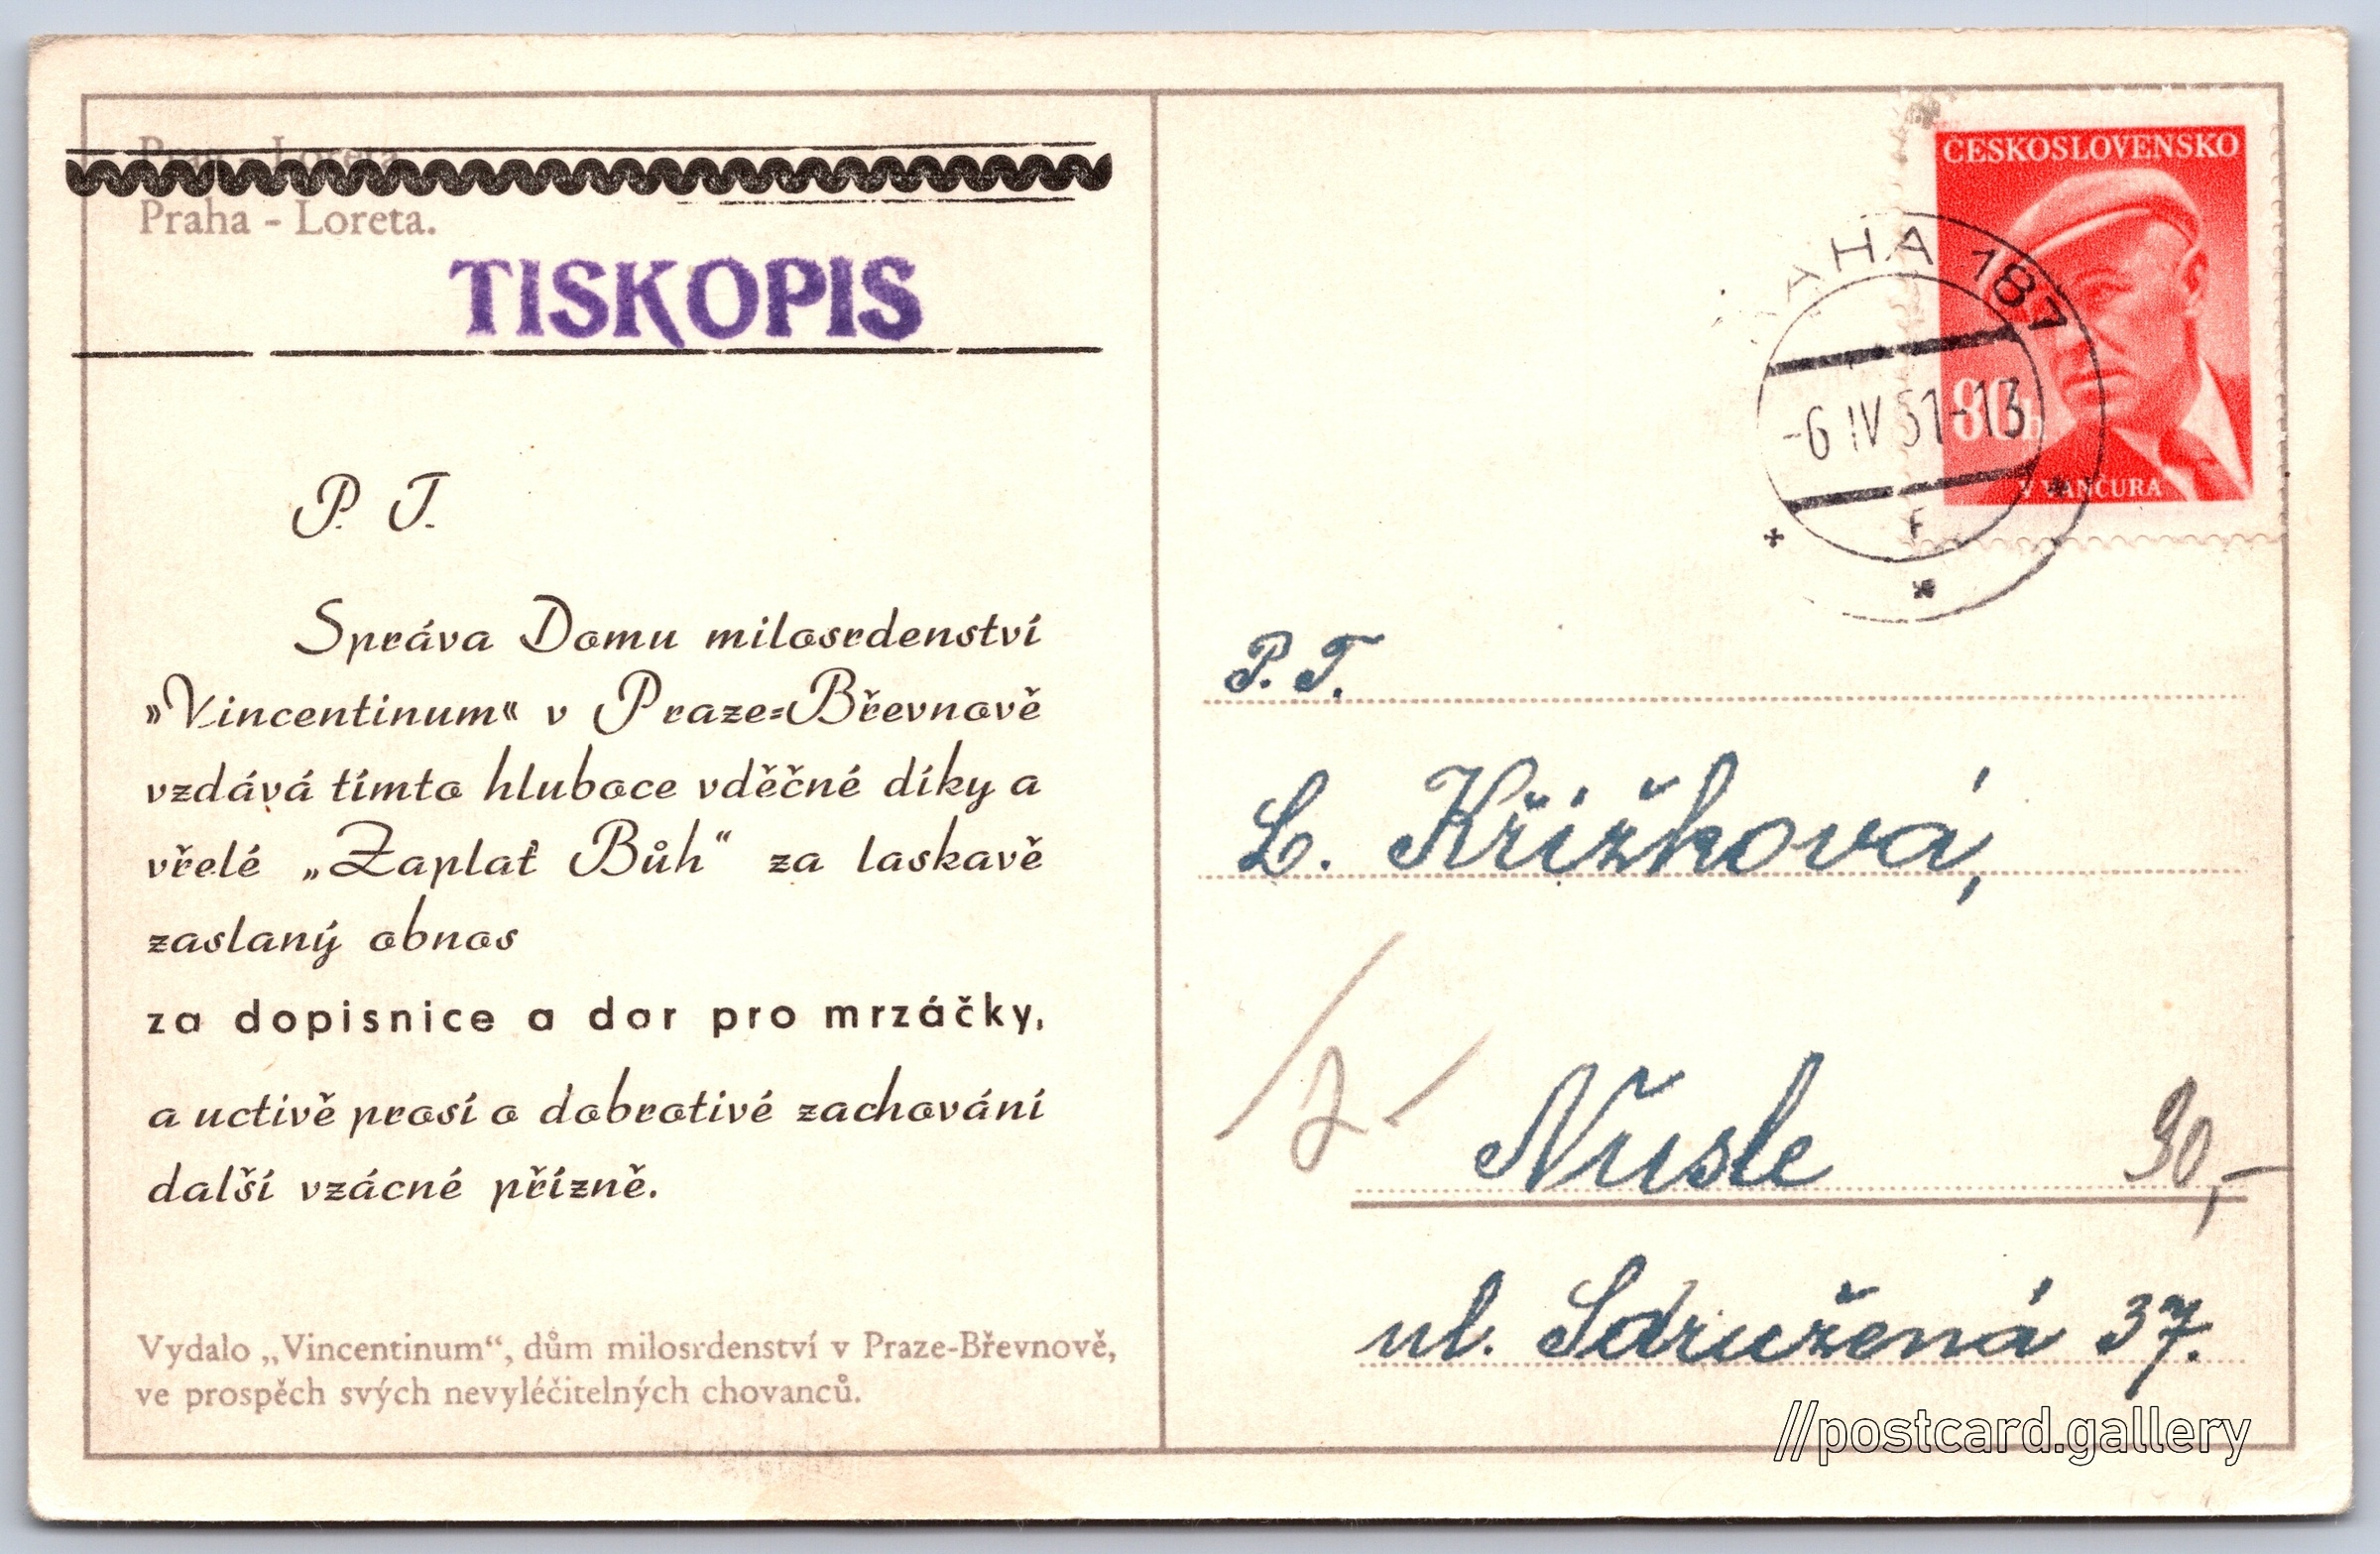 Prag - Loreta.
Praha - Loreta.
TISKOPIS
P. T.
Správa Domu milosrdenství
»Vincentinum« v Praze=Břevnově
vzdává tímto hluboce vděčné díky a
vřelé „Zaplať Bůh“ za laskavě
zaslaný obnos
za dopisnice a dar pro mrzáčky,
a uctivě prosí o dobrotivé zachování
další vzácné přízně.
Vydalo „Vincentinum“, dům milosrdenství v Praze-Břevnově,
ve prospěch svých nevyléčitelných chovanců.
ČESKOSLOVENSKO
80h
V. VANČURA
PRAHA 187
-6 IV 51-13
F
P. T.
L. Křižková,
Nusle
30,-
ul. Sdružená 37.
//postcard.gallery